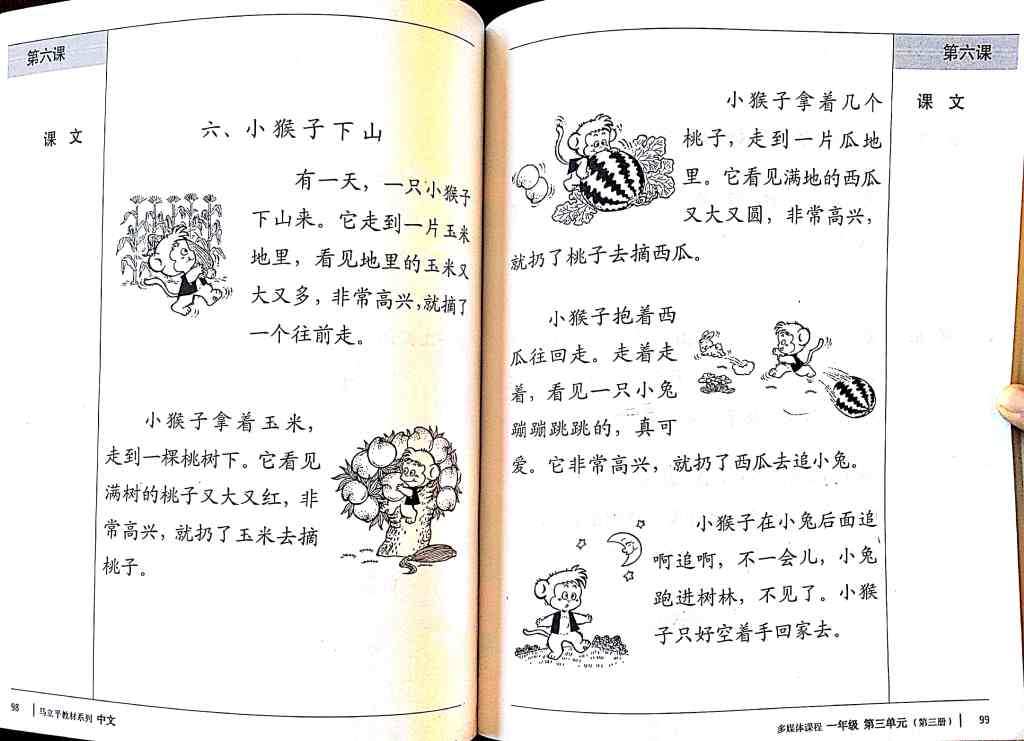 第六课
课 文
六、小猴子下山
有一天，一只小猴子
下山来。它走到一片玉米
地里，看见地里的玉米又
大又多，非常高兴，就摘了
一个往前走。
小猴子拿着玉米，
走到一棵桃树下。它看见
满树的桃子又大又红，非
常高兴，就扔了玉米去摘
桃子。
98 马立平教材系列 中文
第六课
课 文
小猴子拿着几个
桃子，走到一片瓜地
里。它看见满地的西瓜
又大又圆，非常高兴，
就扔了桃子去摘西瓜。
小猴子抱着西
瓜往回走。走着走
着，看见一只小兔
蹦蹦跳跳的，真可
爱。它非常高兴，就扔了西瓜去追小兔。
小猴子在小兔后面追
啊追啊，不一会儿，小兔
跑进树林，不见了。小猴
子只好空着手回家去。
多媒体课程 一年级 第三单元（第三册） 99